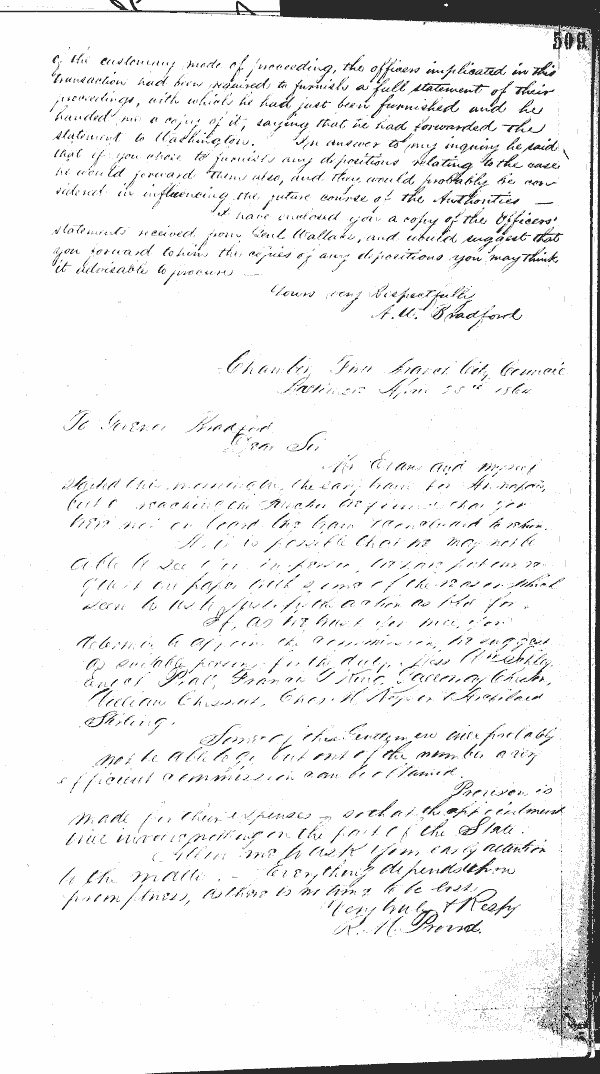 509
of the customary mode of proceeding, the officers implicated in this
transaction had been required to furnish a full statement of their
proceedings, with which he had just been furnished and he
handed me a copy of it, saying that he had forwarded the
statement to Washington. In answer to my inquiry he said
that if you chose to furnish any depositions relating to the case
he would forward them also, and they would probably be con-
sidered in influencing the future course of the Authorities —
I have enclosed you a copy of the Officers'
statements received from Genl Wallace, and would suggest that
you forward to him the copies of any depositions you may think
it advisable to procure —
Yours very Respectfully
A. W. Bradford
Chamber First Branch City Council
Baltimore 1864
To Governor Bradford
Dear Sir
Mr Evans and myself
started this morning in the early train for Annapolis,
but on reaching the Junction that you
were not on board the train to return.
As it is possible that we may not be
able to see you in person, we have put our re-
quest on paper with some of the reasons which
seem to us to justify the action as
If, as we trust you may, you
determine to appoint the commission, we suggest
as suitable persons for the duty,
Francis T King, Galloway Cheston,
William Chesnut, Archibald
Stirling.
Some of these Gentlemen will probably
not be able to go, but out of the number a very
efficient commission can be obtained.
Provision is
made for their expenses so that the appointment
will involve nothing on the part of the State.
Allow me to ask your early attention
to the matter. — Everything depends upon
promptness, as there is no time to be lost.
Very truly & Respy
R. M. Proud.